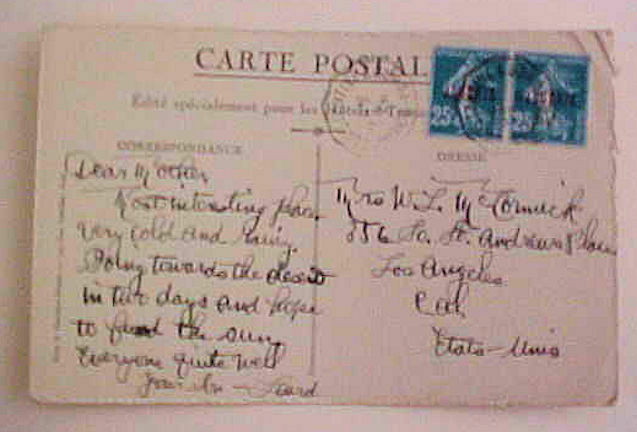 CARTE POSTALE
Edité spécialement pour les Hôtels
CORRESPONDANCE
Dear Mother,
Most interesting place.
Very cold and rainy.
Going towards the desert
in two days and hope
to find the sun.
Everyone quite well
Your
Mrs W. L. McCormick
856 So. St. Andrews Place
Los Angeles
Cal.
Etats-Unis
25
25